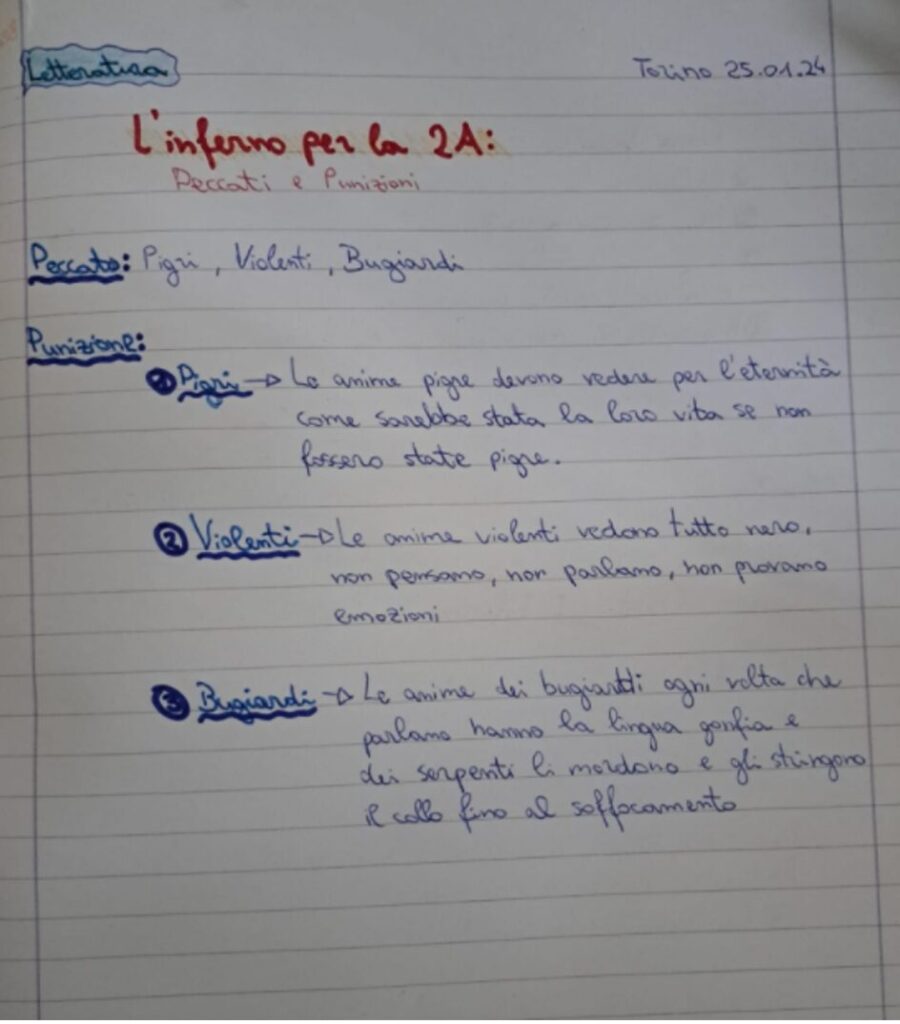 Letteratura
Torino 25.01.24
L'inferno per la 2A:
Peccati e Punizioni
Peccato: Pigri, Violenti, Bugiardi
Punizione:
1 Pigri → Le anime pigre devono vedere per l'eternità
come sarebbe stata la loro vita se non
fossero state pigre.
2 Violenti → Le anime violenti vedono tutto nero,
non pensano, non parlano, non provano
emozioni
3 Bugiardi → Le anime dei bugiardi ogni volta che
parlano hanno la lingua gonfia e
dei serpenti li mordono e gli stringono
il collo fino al soffocamento